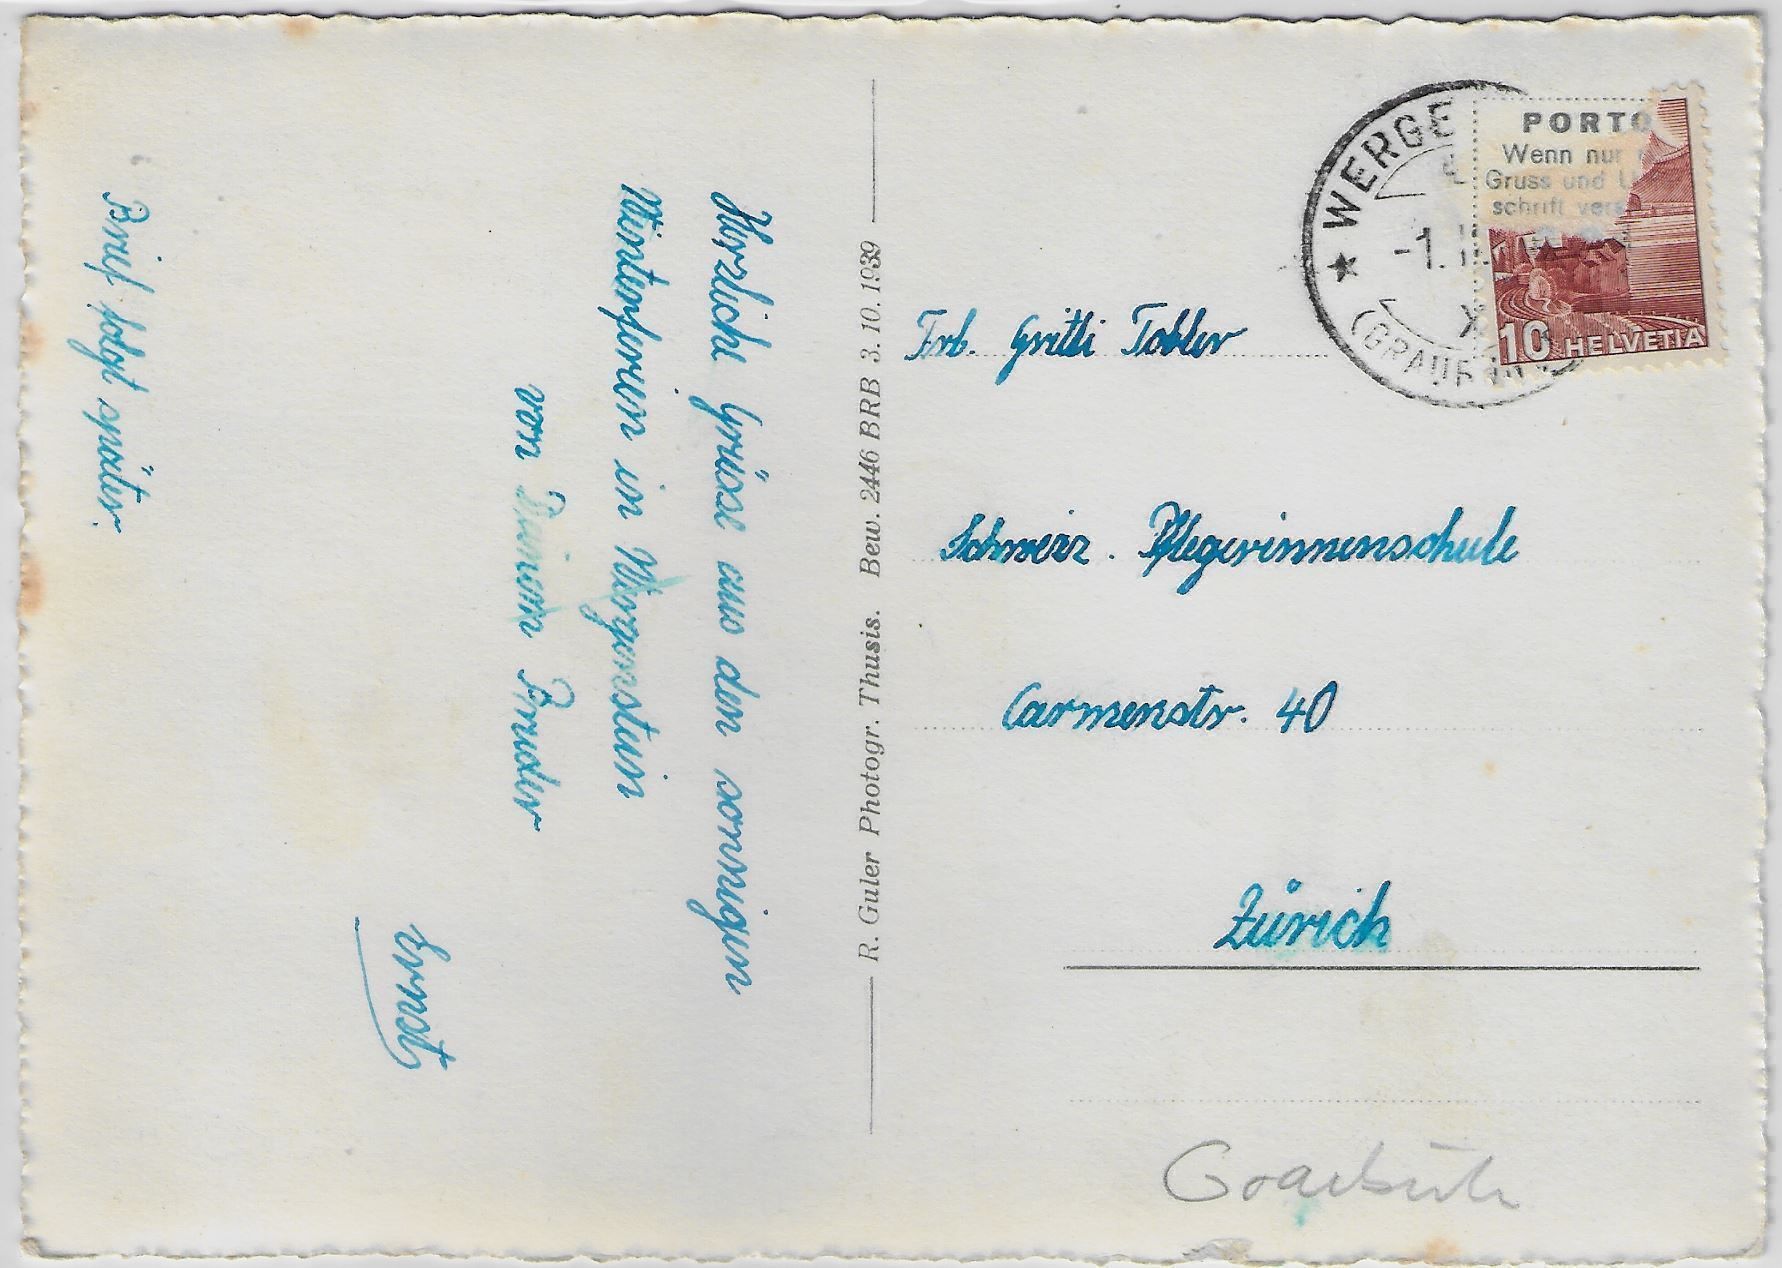 Herzliche Grüsse aus den sonnigen
Winterferien in Wergenstein
von Deinem Bruder
Ernst
Brief folgt später.
R. Guler Photogr. Thusis. Bew. 2446 BRB 3. 10. 1939
WERGE
-1. II.
X
(GRAUB
PORTO
Wenn nur
Gruss und U
schrift vers
10 HELVETIA
Frl. Gritli Tobler
Schweiz. Pflegerinnenschule
Carmenstr. 40
Zürich